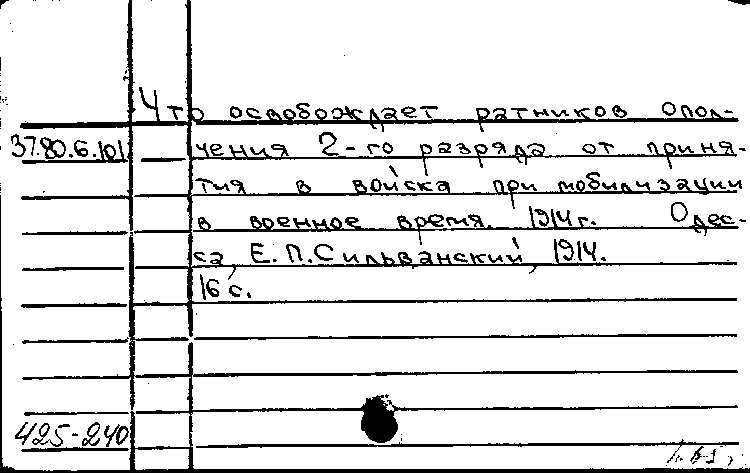 Что освобождает ратников опол-
37.80.6.101
чения 2-го разряда от приня-
тия в войска при мобилизации
в военное время. 1914г. Одес-
са, Е. П. Сильванский, 1914.
16 с.
425-240